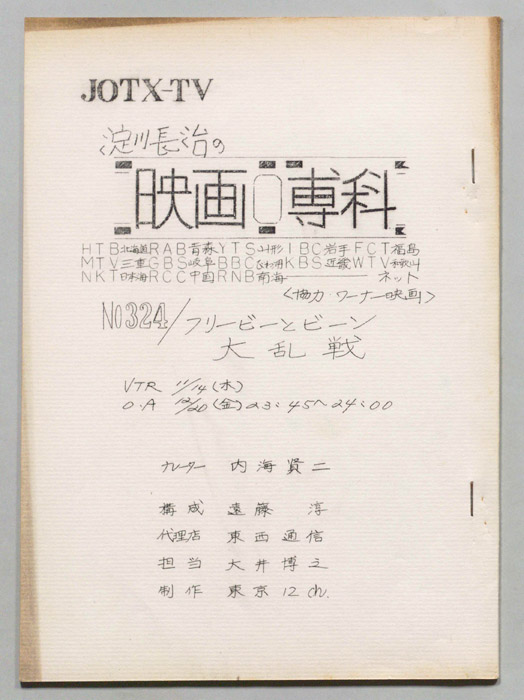 JOTX-TV
淀川長治の
映画 専科
HTB北海道RAB青森YTS山形IBC岩手FCT福島
MTV三重GBS岐阜BBCびわ湖KBS近畿WTV和歌山
NKT日本海RCC中国RNB南海 ネット
<協力・ワーナー映画>
No324/フリービーとビーン
大乱戦
VTR 11/14(木)
O.A 12/20(金)23:45~24:00
ナレーター 内海賢二
構成 遠藤 淳
代理店 東西通信
担当 大井博之
制作 東京12ch.